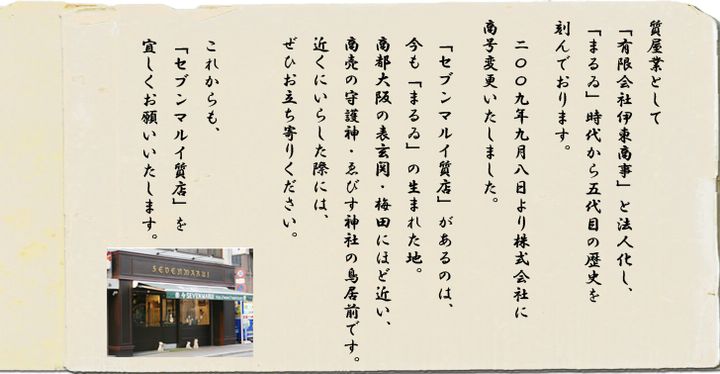 質屋業として
「有限会社伊東商事」と法人化し、
「まるゐ」時代から五代目の歴史を
刻んでおります。
二〇〇九年九月八日より株式会社に
商号変更いたしました。
「セブンマルイ質店」があるのは、
今も「まるゐ」の生まれた地。
商都大阪の表玄関・梅田にほど近い、
商売の守護神・ゑびす神社の鳥居前です。
近くにいらした際には、
ぜひお立ち寄りください。
これからも、
「セブンマルイ質店」を
宜しくお願いいたします。
SEVENMARUI
SEVENMARUI